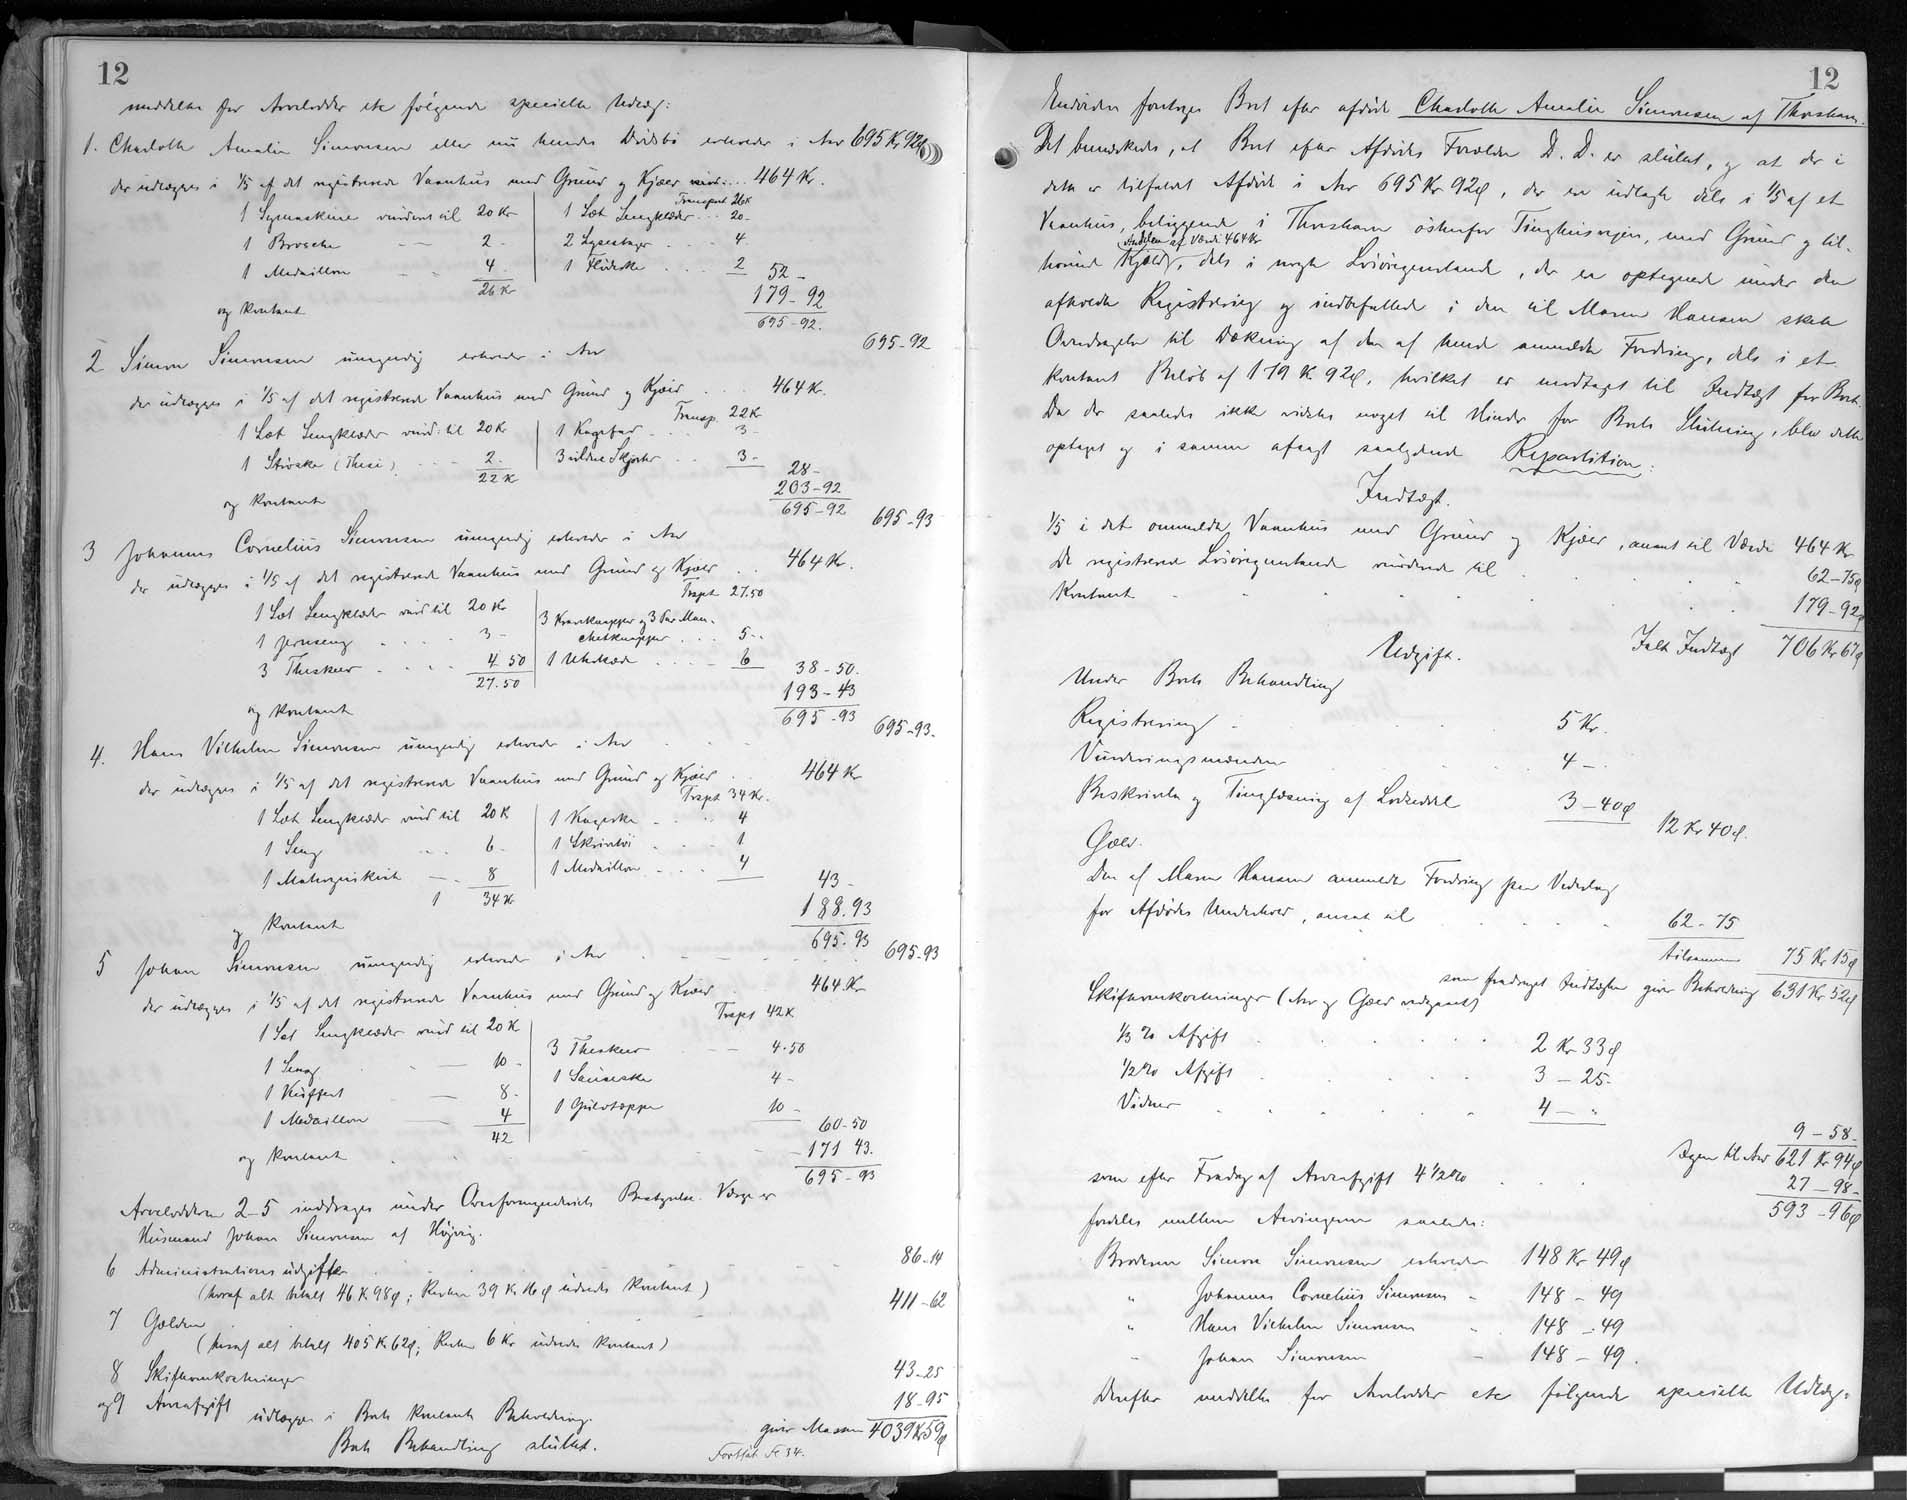 12
meddeltes for Arvelodder etc følgende specielle Udlæg:
1. Charlotte Amalie Simonsen eller nu hendes Dødsbo erholder i Arv 695 Kr 92 ø
der udlægges i 1/5 af det registrerede Vaanhus med Grund og Kjæld vurd. ... 464 Kr.
1 Symaskine vurderet til 20 Kr
1 Brosche — 2 -
1 Medaillon - - 4
26 Kr
Transport 26 K
1 Sæt Sengklæder ... 20 -
2 Lysestager .... 4
1 Flødeske .... 2
52 -
og kontant 179 - 92
695 - 92.
2 Simon Simonsen umyndig erholder i Arv 695 - 92
der udlægges i 1/5 af det registrerede Vaanhus med Grund og Kjæld .. 464 Kr.
1 Sæt Sengklæder vurd: til 20 Kr
1 Strøske (Thesi) .... 2 -
22 K
Transp. 22 K
1 Kagefad .... 3 -
3 uldne Skjorter .. 3 -
28 -
og kontant 203 - 92
695 - 92
3 Johannes Cornelius Simonsen umyndig erholder i Arv 695 - 93
der udlægges i 1/5 af det registrerede Vaanhus med Grund og Kjæld .. 464 Kr.
1 Sæt Sengklæder vurd til 20 Kr
1 Jernseng .... 3 -
3 Theskeer .... 4 50
27.50
Trspt 27.50
3 Kraveknapper og 3 Par Man-
chetknapper ... 5 -
1 Uhrkæde .... 6
38 - 50.
og kontant 193 - 43
695 - 93
4. Hans Vilhelm Simonsen umyndig erholder i Arv 695 - 93.
der udlægges i 1/5 af det registrerede Vaanhus med Grund og Kjæld .. 464 Kr
1 Sæt Sengklæder vurd til 20 K
1 Seng .. 6 -
1 — . 8
34 Kr
Trspt 34 Kr.
1 Kageske - .. 4
1 Skrivetøi .... 1
1 Medaillon .... 4
43 -
og kontant 188.93
695 - 93
5 Johan Simonsen umyndig erholder i Arv 695 - 93
der udlægges i 1/5 af det registrerede Vaanhus med Grund og Kjæld .. 464 Kr
1 Sæt Sengklæder vurd til 20 K
1 Seng . — 10 -
1 Kuffert — 8 -
1 Medaillon — 4
42
Trspt 42 K
3 Theskeer — 4.50
1 Sauceske 4 -
1 Gulvtæppe 10 -
60 - 50
og kontant 171 43.
695 - 93
Arvelodderne 2 - 5 inddrages under Overformynderiets Bestyrelse. Værge er
Husmand Johan Simonsen af Højvig.
6 Administrations udgifter 86 - 14
(hvoraf alt betalt 46 K 98 ø; Resten 39 K 16 ø udredes kontant)
7 Gælden 411 - 62
(hvoraf alt betalt 405 K 62 ø; Resten 6 Kr udredes kontant)
8 Skifteomkostninger 43 - 25
og 9 Arveafgift 18 - 95
udlægges i Boets kontante Beholdning.
giver Massen 4039 Kr 59 ø
Boets Behandling sluttet.
Fortsat Fo 34.
12
Endvidere foretoges Boet efter afdøde Charlotte Amalie Simonsen af Thorshavn.
Det bemærkedes, at Boet efter Afdødes Forældre D. D. er sluttet, og at der i
dette er tilfaldet Afdøde i Arv 695 Kr. 92 ø, der er udlagte dels i 1/5 af et
Vaanhus, beliggende i Thorshavn østenfor Tinghusvejen, med Grund og til-
hørende Kjæld, dels i nogle Løsøregenstande, der er optegnede under den
Andelen af Værdi 464 Kr
afholdte Registrering og indbefattede i den til Maren Hansen skete
Overdragelse til Dækning af den af hende anmeldte Fordring, dels i et
kontant Beløb af 179 K 92 ø, hvilket er modtaget til Indtægt for Boet.
Da der saaledes ikke vidstes noget til Hinder for Boets Slutning, blev dette
optaget og i samme afsagt saalydende Repartition:
Indtægt.
1/5 i det ommeldte Vaanhus med Grund og Kjæld, ansat til Værdi 464 Kr
De registrerede Løsøregenstande vurderede til 62 - 75 ø
Kontant 179 - 92 ø
Ialt Indtægt 706 Kr 67 ø
Udgift.
Under Boets Behandling
Registrering 5 Kr.
Vurderingsmændene 4 -
Beskrivelse og Tinglæsning af Lodseddel 3 - 40 ø
12 Kr 40 ø.
Gæld.
Den af Maren Hansen anmeldte Fordring paa Vederlag
for Afdødes Underhold, ansat til 62 - 75
tilsammen 75 Kr 15 ø
som fradraget Indtægten giver Beholdning 631 Kr 52 ø
Skifteomkostninger (Arv og Gæld vedrørende)
1/3 % Afgift 2 Kr 33 ø
1/2 % Afgift 3 - 25 -
Vidner 4 - "
9 - 58 -
Igjen til Arv 621 Kr 94 ø
som efter Fradrag af Arveafgift 4 1/2 % 27 - 98 -
593 - 96 ø
fordeles mellem Arvingerne saaledes:
Broderen Simon Simonsen erholder 148 Kr 49 ø
" Johannes Cornelius Simonsen - 148 - 49
" Hans Vilhelm Simonsen - 148 - 49
" Johan Simonsen - 148 - 49.
Derefter meddeltes for Arvelodder etc følgende specielle Udlæg: